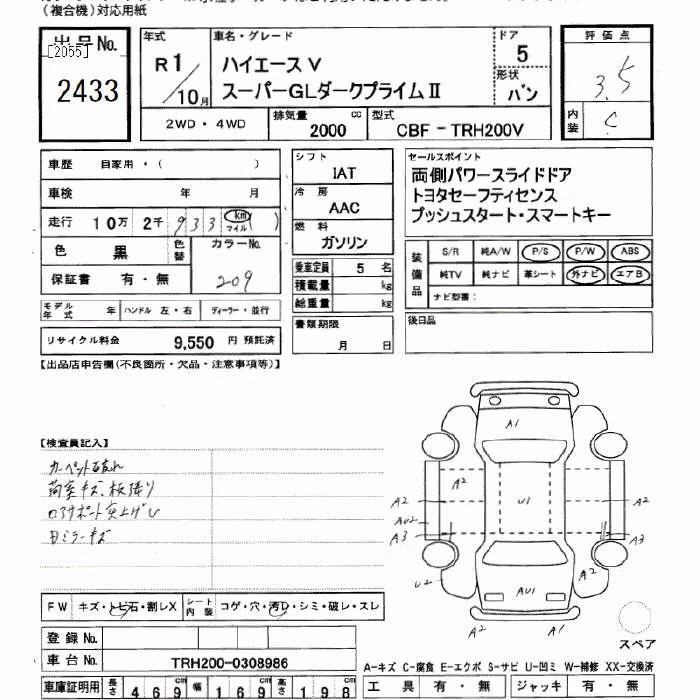 （複合機）対応用紙
出品No.
[2055]
2433
年式
R1/10月
車名・グレード
ハイエースV
スーパーGLダークプライムⅡ
ドア
5
形状
バン
評価点
3.5
内装
C
2WD・4WD
排気量
2000
cc
型式
CBF-TRH200V
車歴 自家用・( )
車検 年 月
走行 10万 2千 933 km マイル ( )
色 黒 色替 カラーNo.
209
保証書 有・無
モデル年式 年 ハンドル 左・右 ディーラー・並行
リサイクル料金 9,550 円 預託済
【出品店申告欄(不良箇所・欠品・注意事項等)】
シフト
IAT
冷房
AAC
燃料
ガソリン
乗車定員 5 名
積載量 kg
総重量 kg
書類期限
月 日
セールスポイント
両側パワースライドドア
トヨタセーフティセンス
プッシュスタート・スマートキー
装備品
S/R 純A/W P/S P/W ABS
純TV 純ナビ 革シート 外ナビ エアB
ナビ型番:
後日品
【検査員記入】
カーペット破れ
荷室キズ、板張り
ロアサポート突上げU
Fミラーキズ
A1
A2
A2
A2
U1
AU2
A3
A3
U2
A2
AU1
A2
A1
スペア
FW キズ・トビ石・割レX シート内装 コゲ・穴・汚D・シミ・破レ・スレ
登録No.
車台No. TRH200-0308986
車庫証明用 長さ 469 cm 幅 169 cm 高さ 198 cm
A-キズ C-腐食 E-エクボ S-サビ U-凹ミ W-補修 XX-交換済
工具 有・無 ジャッキ 有・無